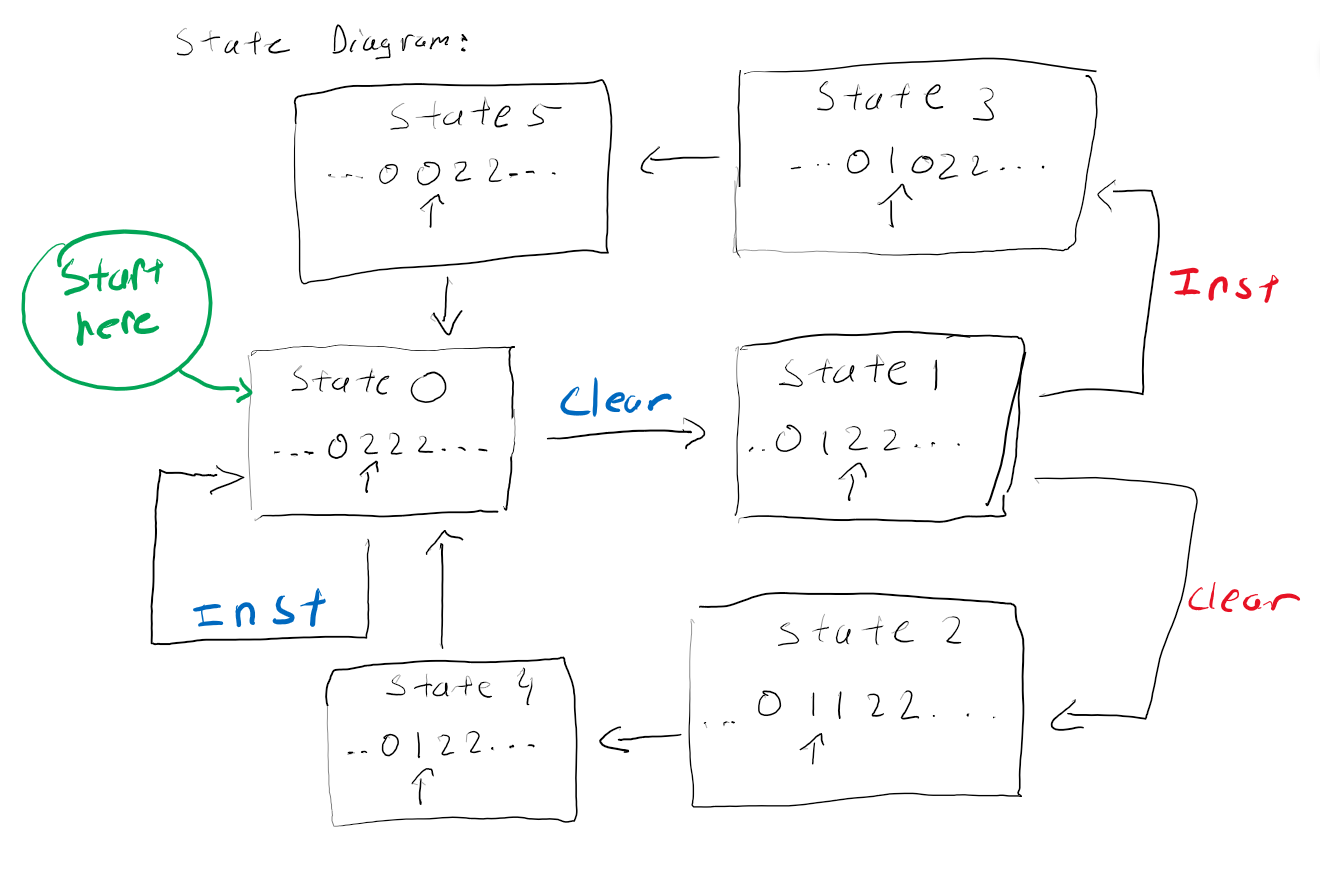 State Diagram:
State 5
---0022---
State 3
---01022...
Start
here
Inst
State 0
---0222---
Clear
State 1
..0122...
Inst
Clear
State 4
..0122...
State 2
...01122...